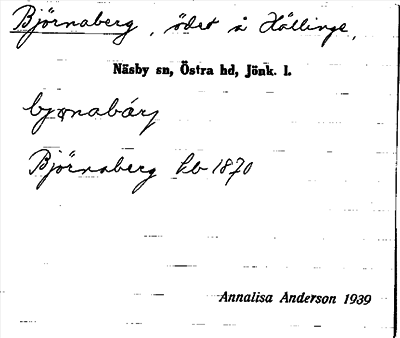 Björnaberg, ödet å Hällinge,
Näsby sn, Östra hd, Jönk. l.
bjɷnabárj
Björnaberg hb 1870
Annalisa Anderson 1939